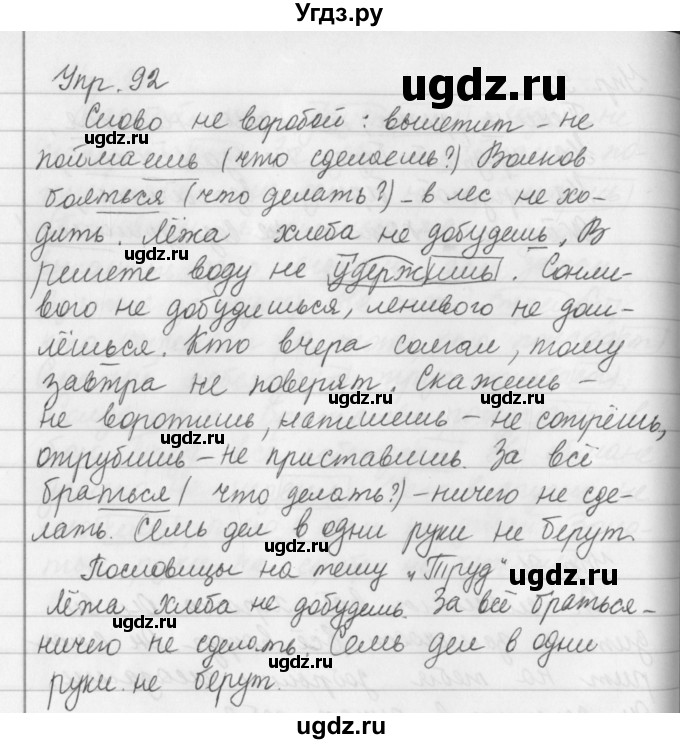 Угдз.ру
Упр. 92
ugdz.ru
Слово не воробей: вылетит – не
поймаешь (что сделаешь?) Волков
бояться (что делать?) – в лес не хо-
дить. Лёжа хлеба не добудешь. В
решете воду не удержишь. Сонли-
вого не добудишься, ленивого не дош-
лёшься. Кто вчера солгал, тому
завтра не поверят. Скажешь –
не воротишь, напишешь – не сотрёшь,
отрубишь – не приставишь. За всё
браться (что делать?) – ничего не сде-
лать. Семь дел в одни руки не берут.
Пословицы на тему „Труд“
Лёжа хлеба не добудешь. За всё браться –
ничего не сделать. Семь дел в одни
руки не берут.
ugdz.ru